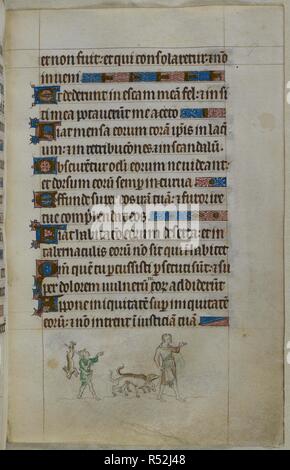 et non fuit: et qui consolaretur: 7 nõ
inueni
Et dederunt in escam meam fel: 7 in si
ti mea potauerunt me aceto
Fiat mensa eorum corã ip̃is in laq̃
um: 7 in retribuciones. 7 in scandalũ
Obscurentur oc̃li eorum ne uideant:
et dorsum eorũ semp̃ in curua
Effund sup̃ eos irã tuã: 7 furor ire
tue comp̃hendat eos.
Fiat habitacõ eorum deserta: et in
tab̃naculis eorũ nõ sit qui habitet
q̃m quẽ tu p̃cussisti p̃secuti sũt: 7 su
per dolorem uulnerũ eor̃ addiderũt
Appone iniquitatẽ sup̃ iniquitatẽ
eorũ: 7 nõ intrent ĩ iusticiã tuã.
alamy
Image ID: R52J48
www.alamy.com